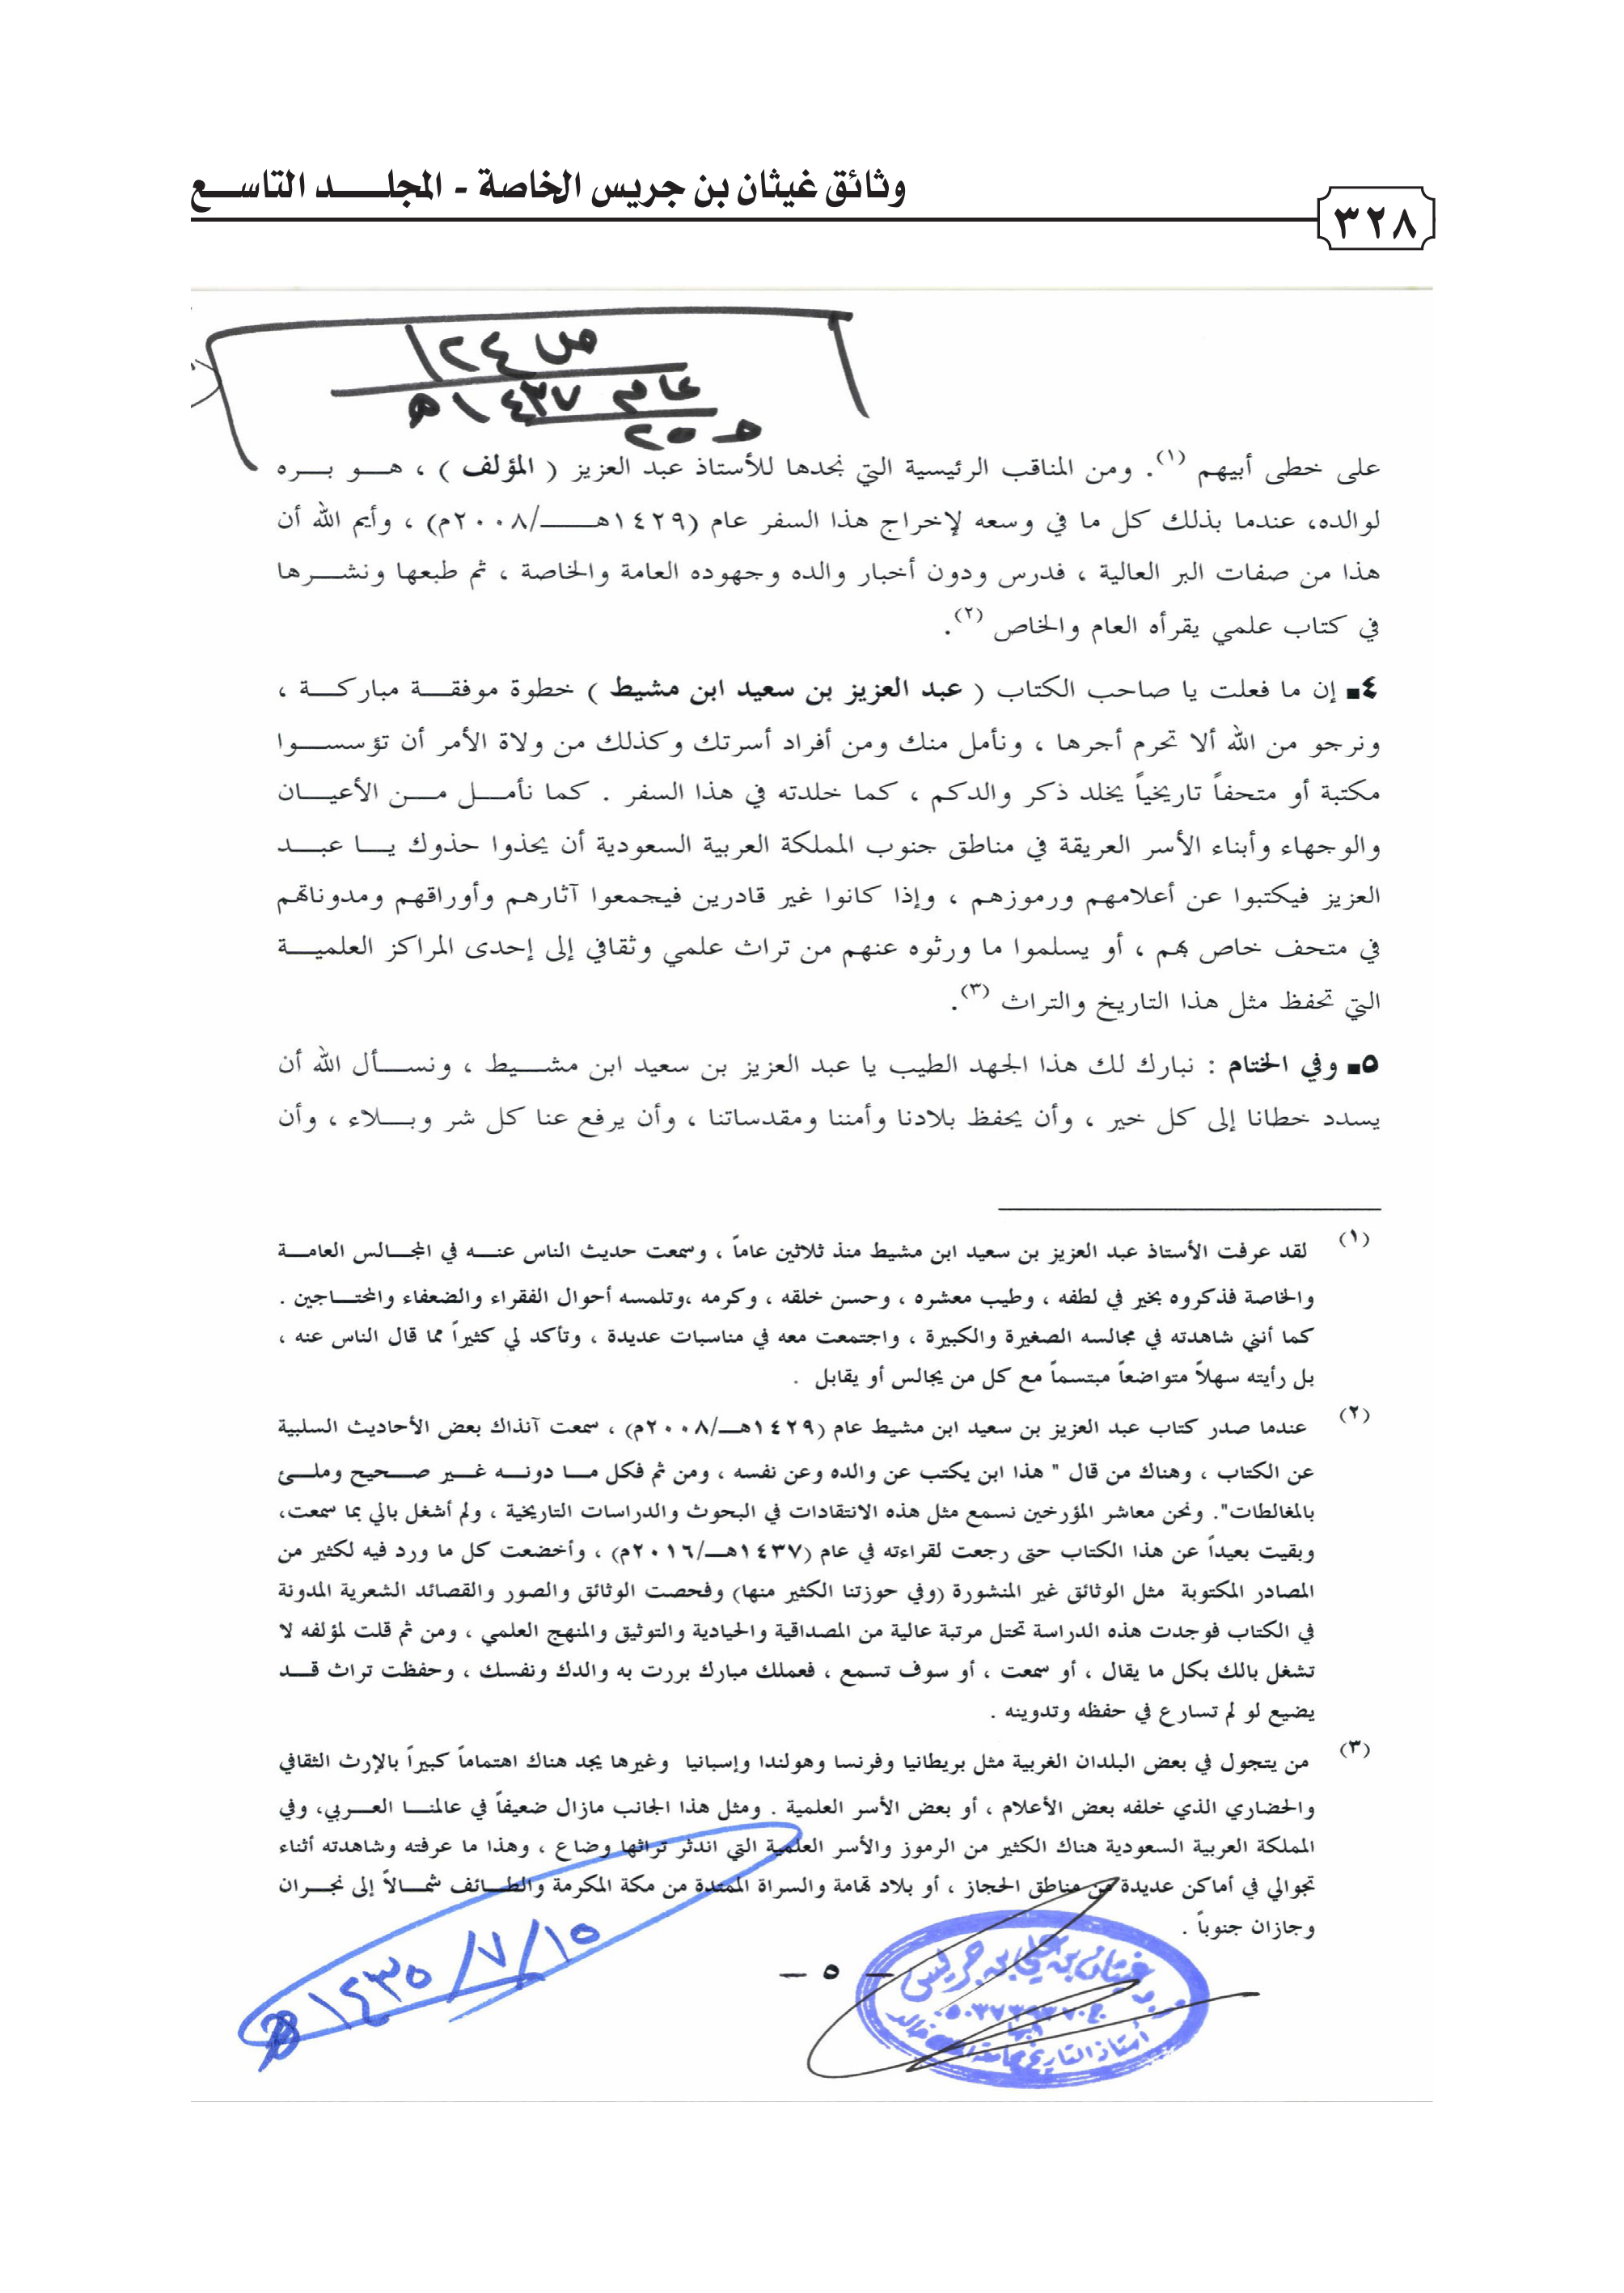 وثائق غيثان بن جريس الخاصة - المجلـــد التاســـع
٣٢٨
ص ١٢٤
عام ١٤٣٧هـ
على خطى أبيهم (١). ومن المناقب الرئيسية التي نجدها للأستاذ عبد العزيز ( المؤلف ) ، هـــو بـــره
لوالده، عندما بذلك كل ما في وسعه لإخراج هذا السفر عام (١٤٢٩هــــ/٢٠٠٨م) ، وأيم الله أن
هذا من صفات البر العالية ، فدرس ودون أخبار والده وجهوده العامة والخاصة ، ثم طبعها ونشـــرها
في كتاب علمي يقرأه العام والخاص (٢).
٤ـ إن ما فعلت يا صاحب الكتاب ( عبد العزيز بن سعيد ابن مشيط ) خطوة موفقـــة مباركـــة ،
ونرجو من الله ألا تحرم أجرها ، ونأمل منك ومن أفراد أسرتك وكذلك من ولاة الأمر أن تؤسســـوا
مكتبة أو متحفاً تاريخياً يخلد ذكر والدكم ، كما خلدته في هذا السفر . كما نأمـــل مـــن الأعيـــان
والوجهاء وأبناء الأسر العريقة في مناطق جنوب المملكة العربية السعودية أن يحذوا حذوك يـــا عبـــد
العزيز فيكتبوا عن أعلامهم ورموزهم ، وإذا كانوا غير قادرين فيجمعوا آثارهم وأوراقهم ومدوناتهم
في متحف خاص بهم ، أو يسلموا ما ورثوه عنهم من تراث علمي وثقافي إلى إحدى المراكز العلميـــة
التي تحفظ مثل هذا التاريخ والتراث (٣).
٥ـ وفي الختام : نبارك لك هذا الجهد الطيب يا عبد العزيز بن سعيد ابن مشـــيط ، ونســـأل الله أن
يسدد خطانا إلى كل خير ، وأن يحفظ بلادنا وأمننا ومقدساتنا ، وأن يرفع عنا كل شر وبـــلاء ، وأن
(١) لقد عرفت الأستاذ عبد العزيز بن سعيد ابن مشيط منذ ثلاثين عاماً ، وسمعت حديث الناس عنـــه في المجـــالس العامـــة
والخاصة فذكروه بخير في لطفه ، وطيب معشره ، وحسن خلقه ، وكرمه ،وتلمسه أحوال الفقراء والضعفاء والمحتـــاجين .
كما أنني شاهدته في مجالسه الصغيرة والكبيرة ، واجتمعت معه في مناسبات عديدة ، وتأكد لي كثيراً مما قال الناس عنه ،
بل رأيته سهلاً متواضعاً مبتسماً مع كل من يجالس أو يقابل .
(٢) عندما صدر كتاب عبد العزيز بن سعيد ابن مشيط عام (١٤٢٩هــ/٢٠٠٨م) ، سمعت آنذاك بعض الأحاديث السلبية
عن الكتاب ، وهناك من قال " هذا ابن يكتب عن والده وعن نفسه ، ومن ثم فكل مـــا دونـــه غـــير صـــحيح وملـــئ
بالمغالطات". ونحن معاشر المؤرخين نسمع مثل هذه الانتقادات في البحوث والدراسات التاريخية ، ولم أشغل بالي بما سمعت،
وبقيت بعيداً عن هذا الكتاب حتى رجعت لقراءته في عام (١٤٣٧هــ/٢٠١٦م) ، وأخضعت كل ما ورد فيه لكثير من
المصادر المكتوبة مثل الوثائق غير المنشورة (وفي حوزتنا الكثير منها) وفحصت الوثائق والصور والقصائد الشعرية المدونة
في الكتاب فوجدت هذه الدراسة تحتل مرتبة عالية من المصداقية والحيادية والتوثيق والمنهج العلمي ، ومن ثم قلت لمؤلفه لا
تشغل بالك بكل ما يقال ، أو سمعت ، أو سوف تسمع ، فعملك مبارك بررت به والدك ونفسك ، وحفظت تراث قـــد
يضيع لو لم تسارع في حفظه وتدوينه .
(٣) من يتجول في بعض البلدان الغربية مثل بريطانيا وفرنسا وهولندا وإسبانيا وغيرها يجد هناك اهتماماً كبيراً بالإرث الثقافي
والحضاري الذي خلفه بعض الأعلام ، أو بعض الأسر العلمية . ومثل هذا الجانب مازال ضعيفاً في عالمنـــا العـــربي، وفي
المملكة العربية السعودية هناك الكثير من الرموز والأسر العلمية التي اندثر تراثها وضاع ، وهذا ما عرفته وشاهدته أثناء
تجوالي في أماكن عديدة من مناطق الحجاز ، أو بلاد تهامة والسراة الممتدة من مكة المكرمة والطـــائف شمـــالاً إلى نجـــران
وجازان جنوباً .
– ٥ –
غيثان بن علي بن جريس
أستاذ التاريخ بجامعة الملك خالد
١٤٣٥/٧/١٥هـ